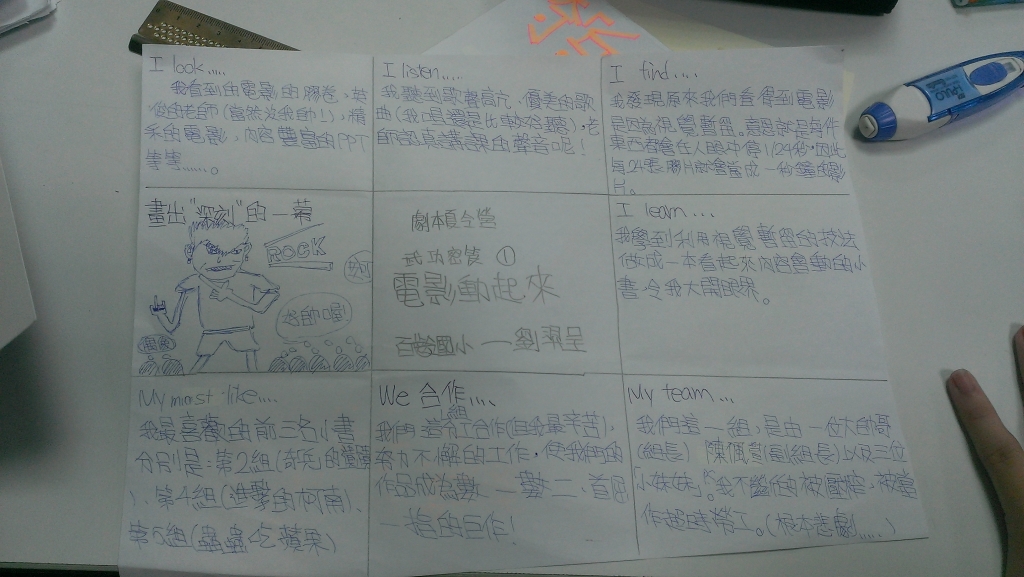 I look.....
我看到的電影的膠卷、英
俊的老師(當然沒我帥!)、精
采的電影,內容豐富的PPT
等等......。
I listen....
我聽到歌聲高亢、優美的歌
曲(我口還是比較好聽)、老
師認真講課的聲音呢!
I find....
我發現原來我們看得到電影
是因為視覺暫留。意思就是每件
東西都會在人眼中停1/24秒,因此
每24張膠片就會當成一秒鐘的影
片。
畫出"深刻"的一幕
ROCK
好帥喔!
劇本夏令營
式功密笈 ①
電影動起來
百齡國小—劉羿呈
I learn...
我學到利用視覺暫留的技法
做成一本看起來內容會動的小
書,令我大開眼界。
My most like....
我最喜歡的前三名小書
分別是:第2組
、第4組(進擊的柯南)、
第5組(蟲蟲吃蘋果)
We 合作....
我們這組分工合作(但我最辛苦),
努力不懈的工作,使我們的
作品成為數一數二、首屈
一指的巨作!
My team...
我們這一組,是由一位大帥哥
(組長)、陳(副組長)以及三位
「小妹妹」。我不斷的被壓榨,被當
作超時勞工。(根本悲劇.....)